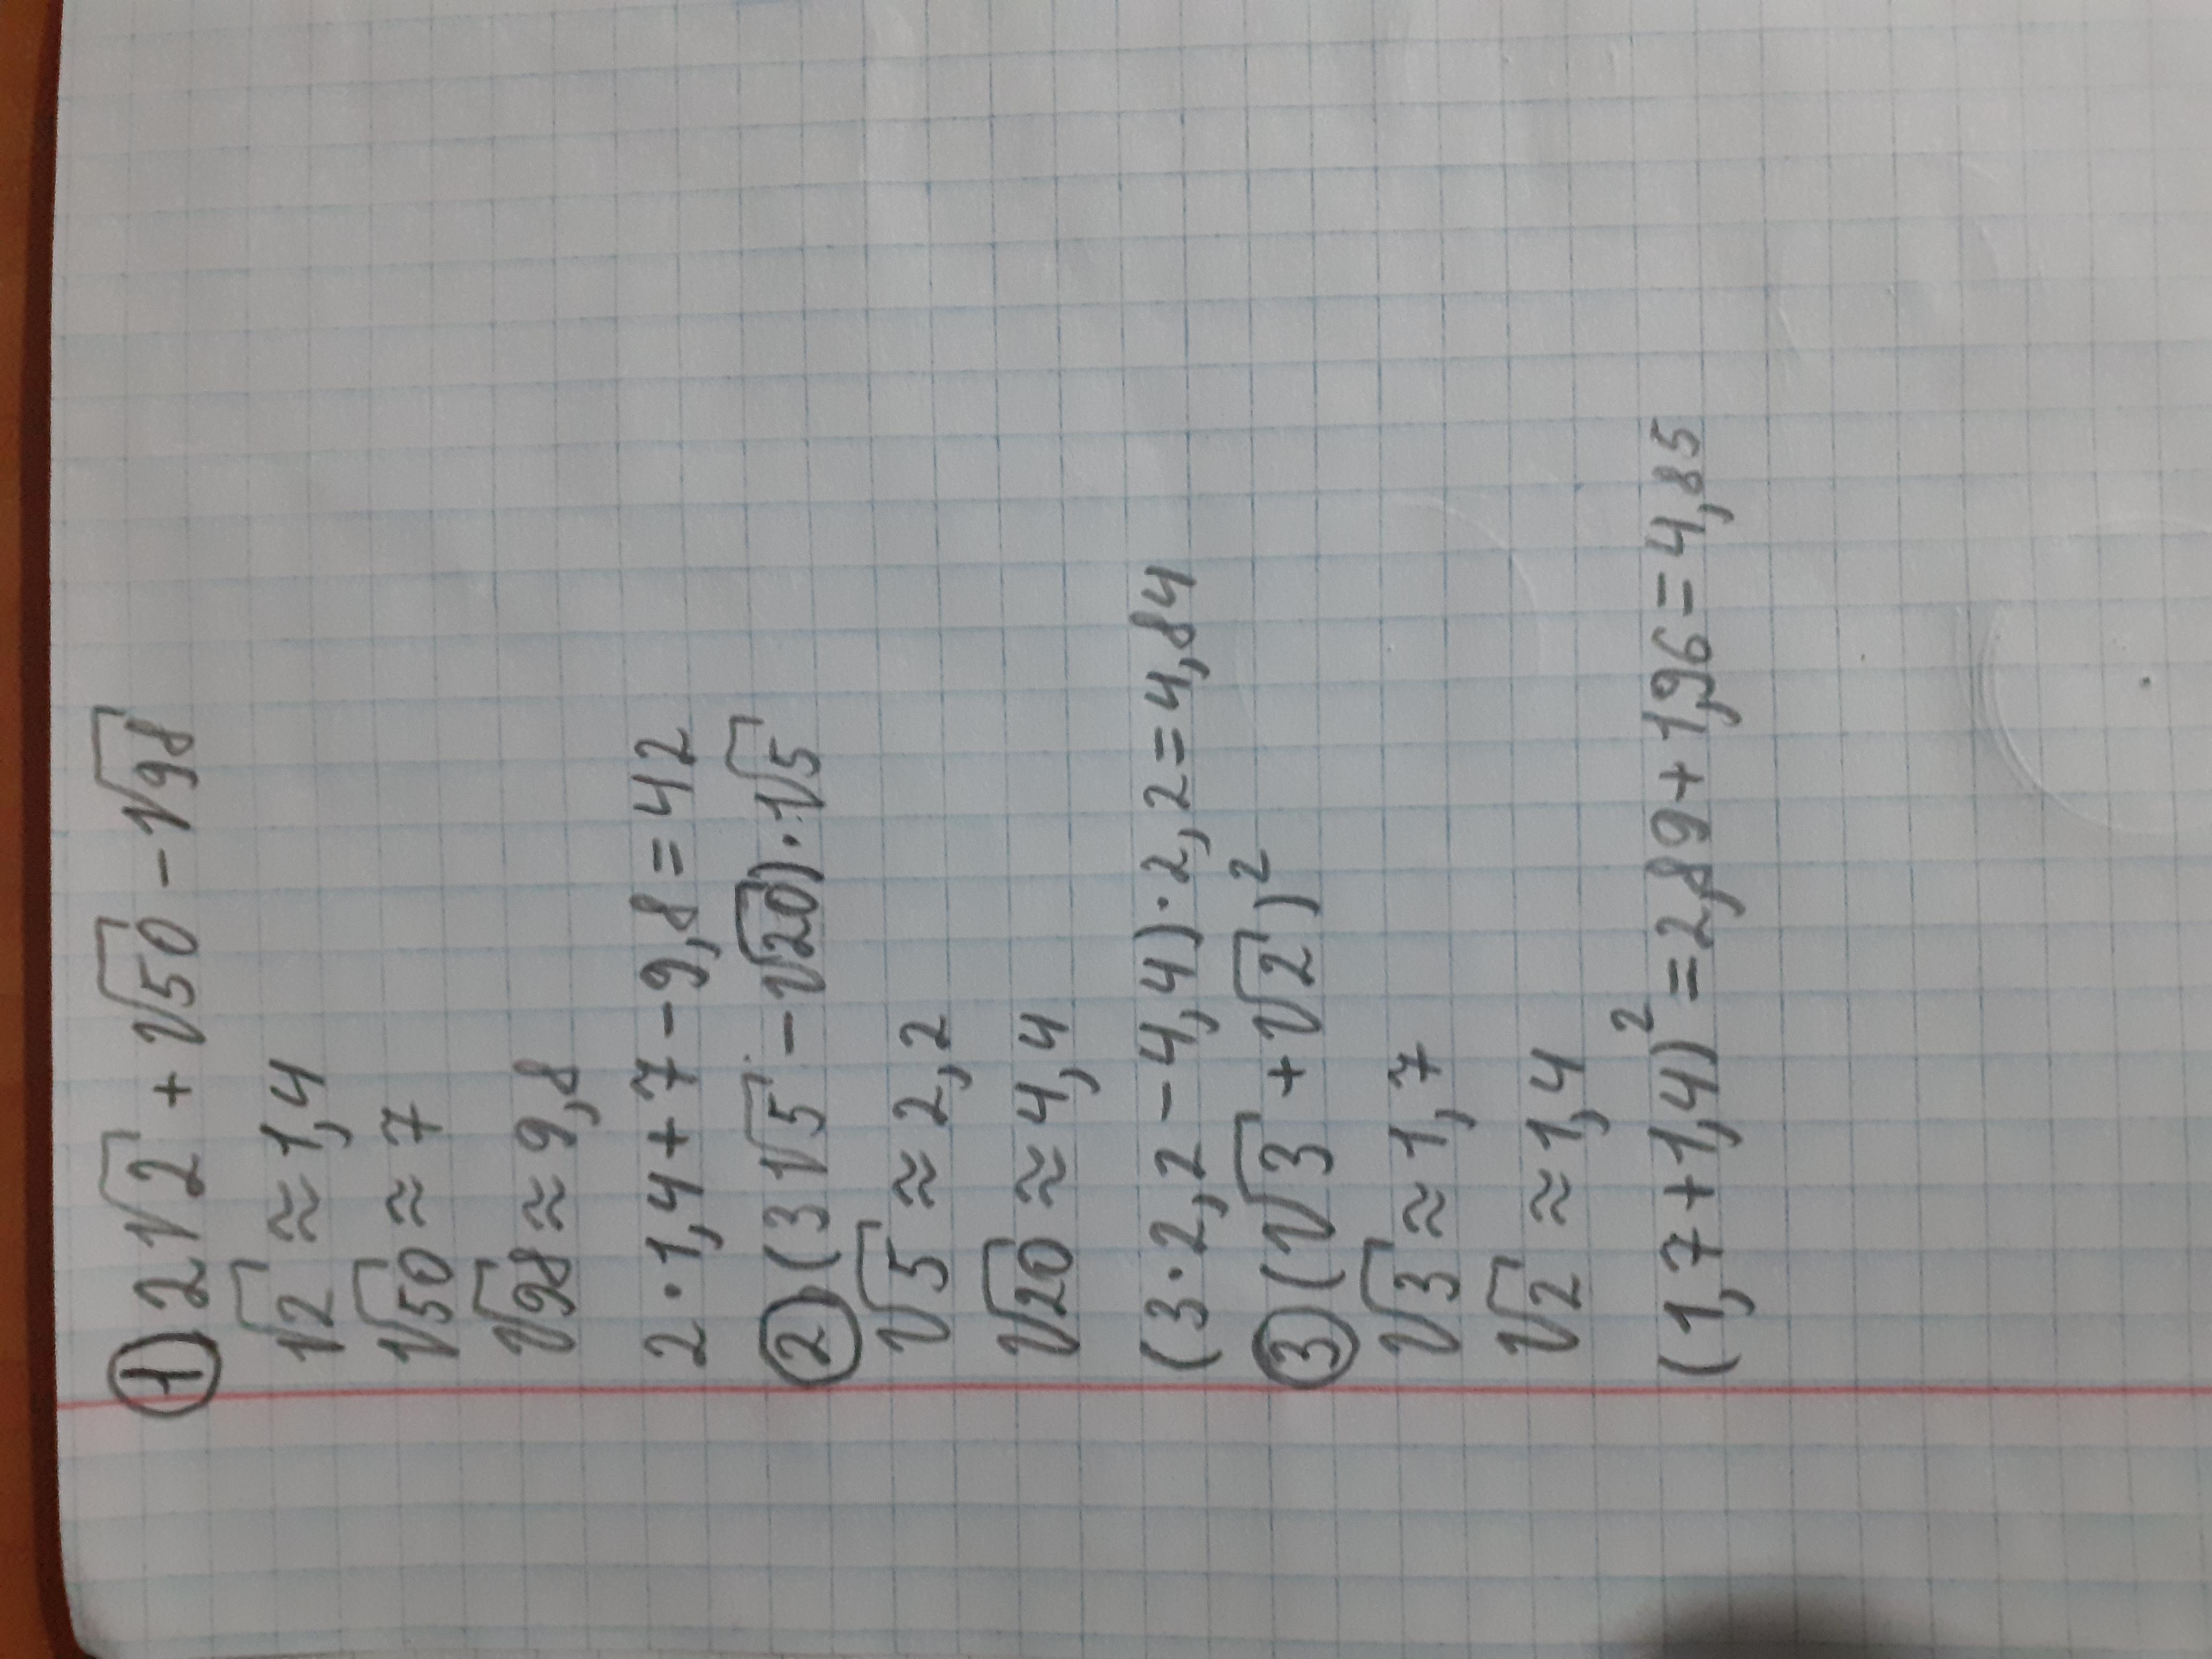 ① 2√2 + √50 - √98
√2 ≈ 1,4
√50 ≈ 7
√98 ≈ 9,8
2 · 1,4 + 7 - 9,8 = 42
② (3√5 - √20) · √5
√5 ≈ 2,2
√20 ≈ 4,4
(3 · 2,2 - 4,4) · 2,2 = 4,84
③ (√3 + √2)²
√3 ≈ 1,7
√2 ≈ 1,4
(1,7 + 1,4)² = 2,89 + 1,96 = 4,85